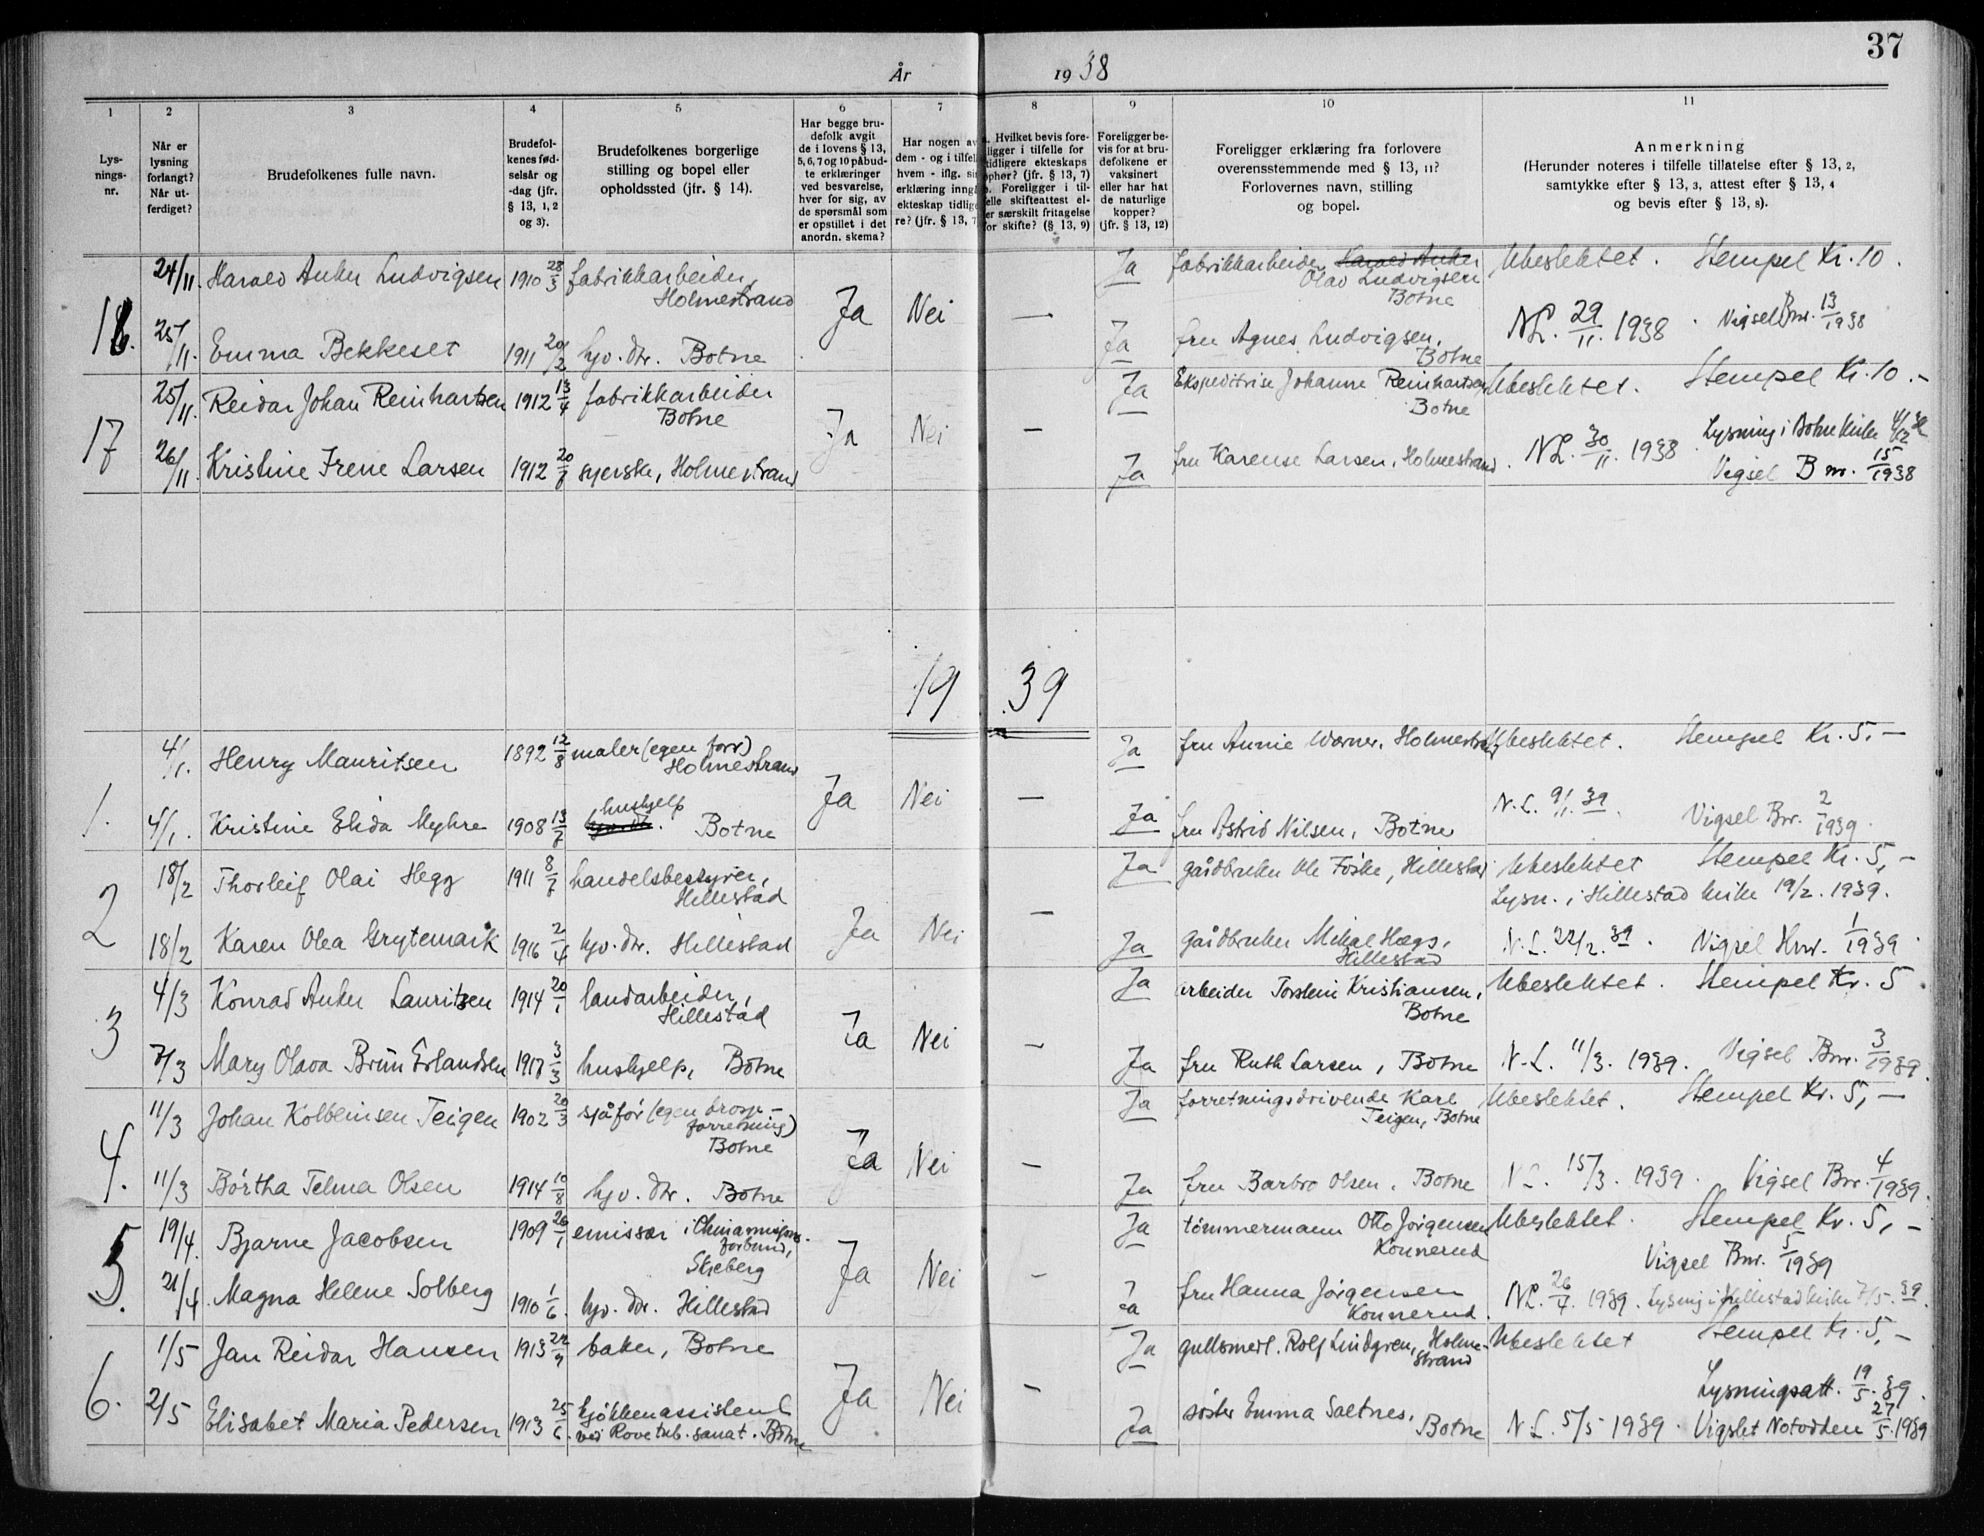 37
År 1938
1 2 3 4 5 6 7 8 9 10 11
Lys-
nings-
nr.
Når er
lysning
forlangt?
Når ut-
ferdiget?
Brudefolkenes fulle navn.
Brudefol-
kenes fød-
selsår og
-dag (jfr.
§ 13, 1, 2
og 3).
Brudefolkenes borgerlige
stilling og bopel eller
opholdssted (jfr. § 14).
Har begge bru-
defolk avgit
de i lovens § 13,
5, 6, 7 og 10 påbud-
te erklæringer
ved besvarelse,
hver for sig, av
de spørsmål som
er opstillet i det
anordn. skema?
Har nogen av
dem - og i tilfel
hvem - iflg. si
erklæring inng
ekteskap tidlig
re? (jfr. § 13, 7
Hvilket bevis fore-
ligger i tilfelle for
tidligere ekteskaps
ophør? (jfr. § 13, 7)
b. Foreligger i til-
felle skifteattest el-
er særskilt fritagelse
for skifte? (§ 13, 9)
Foreligger be-
vis for at bru-
defolkene er
vaksinert
eller har hat
de naturlige
kopper?
(jfr. § 13, 12)
Foreligger erklæring fra forlovere
overensstemmende med § 13, 11?
Forlovernes navn, stilling
og bopel.
Anmerkning
(Herunder noteres i tilfelle tillatelse efter § 13, 2,
samtykke efter § 13, 3, attest efter § 13, 4
og bevis efter § 13, 8).
16. 24/11. Harald Anker Ludvigsen 1910 28/3 fabrikkarbeider, Holmestrand Ja Nei — Ja fabrikkarbeider Harald Anker
Olav Ludvigsen
Botne
Ubeslektet. Stempel Kr. 10.
25/11. Emma Bekkeset 1911 20/2 hjv. dtr. Botne Ja fru Agnes Ludvigsen,
Botne
NL. 29/11. 1938. Vigsel Bnr. 13/1938
17 25/11. Reidar Johan Reinhartsen 1912 13/4 fabrikkarbeider
Botne Ja Nei — Ja Ekspeditrise Johanne Reinhartsen
Botne
Ubeslektet. Stempel Kr. 10.-
26/11. Kristine Irene Larsen 1912 20/7 syerske, Holmestrand Ja fru Karense Larsen, Holmestrand. NL. 30/11. 1938. Lysning i Botne kirke 4/12 38
Vigsel Bnr. 15/1938
19 39
1. 4/1. Henry Mauritsen 1892 12/8 maler (egen forr)
Holmestrand Ja Nei — Ja fru Annie Warner, Holmestrand Ubeslektet. Stempel Kr. 5.—
4/1. Kristine Elida Myhre 1908 13/7 hushjelp
hjv. dtr. Botne Ja fru Astrid Nilsen, Botne N.L. 9/1. 39. Vigsel Bnr. 2/1939.
2 18/2 Thorleif Olai Hegg 1911 8/7 handelsbestyrer,
Hillestad Ja Nei — Ja gårdbruker Ole Foske, Hillestad Ubeslektet Stempel Kr. 5,—
Lysn. i Hillestad kirke 19/2. 1939.
18/2 Karen Olea Grytemark 1916 2/4 hjv. dtr. Hillestad Ja gårdbruker Mikal Hægg,
Hillestad
N.L. 22/2. 39. Vigsel Hnr. 1/1939.
3 4/3 Konrad Anker Lauritsen 1914 20/1 landarbeider,
Hillestad Ja Nei — Ja arbeider Torstein Kristiansen,
Botne
Ubeslektet. Stempel Kr. 5.
7/3 Mary Olava Brün Erlandsen 1917 3/3 hushjelp, Botne Ja fru Ruth Larsen, Botne N.L. 11/3. 1939. Vigsel Bnr. 3/1939.
4. 11/3 Johan Kolbeinsen Teigen 1902 20/3 sjåfør (egen drosje-
forretning)
Botne Ja Nei — Ja forretningsdrivende Karl
Teigen, Botne
Ubeslektet. Stempel Kr. 5,—
11/3 Børtha Telma Olsen 1914 10/8 hjv. dtr. Botne Ja fru Barbro Olsen, Botne N.L. 15/3. 1939. Vigsel Bnr. 4/1939.
5. 19/4. Bjarne Jacobsen 1909 26/1 emissær i Chinamisjons-
forbund,
Skjeberg Ja Nei — Ja tømmermann Otto Jörgensen
Konnerud
Ubeslektet. Stempel Kr. 5,—
Vigsel Bnr. 5/1939
21/4. Magna Helene Solberg 1910 1/6. hjv. dtr. Hillestad Ja fru Hanna Jörgensen
Konnerud.
NL. 26/4. 1939. Lysning i Hillestad kirke 7/5. 39.
6. 1/5 Jan Reidar Hansen 1913 22/9 baker, Botne Ja Nei — Ja gullsmed. Rolf Lindgren, Holme-
strand
Ubeslektet Stempel Kr. 5,—
Lysningsatt. 19/5. 39.
2/5 Elisabet Maria Pedersen 1913 25/6. kjøkkenassistent
ved Rove tub. sanat. Botne Ja søster Emma Saltnes,
Botne
N.L. 5/5 1939. Vigslet Notodden 27/5. 1939